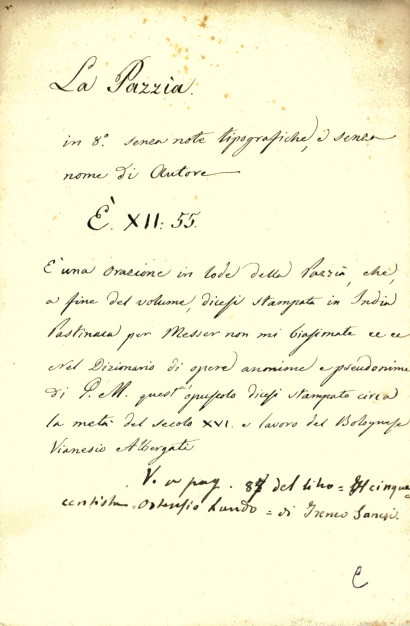 La Pazzia.
in 8.° senza note tipografiche, e senza
nome di Autore
È. XII: 55.
È una orazione in lode della Pazzia, che,
a fine del volume, dicesi stampata in India
Pastinaca per Messer non mi biasimate ec ec
Nel Dizionario di opere anonime e pseudonime
di G. M. quest' opuscolo dicesi stampato circa
la metà del secolo XVI. e lavoro del Bolognese
Vianesio Albergati
V. a pag. 87 del libro = Il cinque
centista Ortensio Lando = di Ireneo Sanesi.